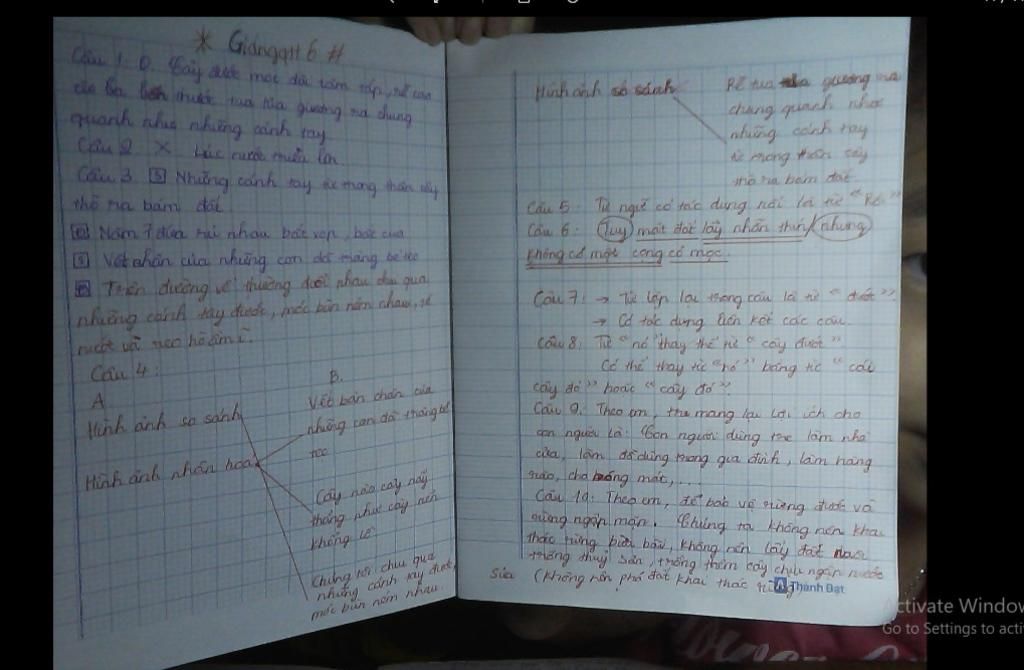 * Giangqtt 6 #
Câu 1: D. Cây đước mọc dài tăm tắp, rễ cao
quanh như những cánh tay
Câu 2 X Lúc nước triều lên
Câu 3 S Những cánh tay từ trong thân cây
thò ra bám đất
Năm 7 đứa rủi nhau bắt vọp, bắt cua
S Vết chân của những con dã tràng bé teo
Trên đường về thường đuổi nhau chui qua
những cánh tay đước, móc bùn ném nhau, rẽ
nước và reo hò ầm ĩ.
Câu 4:
A B.
Hình ảnh so sánh
Vết bàn chân của
những con dã tràng bé
teo
Hình ảnh nhân hoá
Cây nào cây nấy
thẳng như cây nến
khổng lồ
Chúng tôi chui qua
những cánh tay đước,
móc bùn ném nhau.
Hình ảnh so sánh
Rễ tua tủa giương ra
chung quanh như
những cánh tay
từ trong thân cây
thò ra bám đất
Câu 5: Từ ngữ có tác dụng nối là từ "Rồi"
Câu 6: (Tuy) mặt đất lầy nhẵn thín / (nhưng)
không có một cọng cỏ mọc.
Câu 7: → Từ lặp lại trong câu là từ "đước".
→ Có tác dụng liên kết các câu.
Câu 8: Từ "nó" thay thế từ "cây đước"
Có thể thay từ "nó" bằng từ "cái
cây đó" hoặc "cây đó".
Câu 9: Theo em, mang lại lợi ích cho
con người là: Con người dùng làm nhà
cửa, làm đồ dùng trong gia đình, làm hàng
rào, cho bóng mát,...
Câu 10: Theo em, để bảo vệ rừng đước và
rừng ngập mặn. Chúng ta không nên khai
thác rừng bừa bãi, không nên lấy đất nuôi
trồng thuỷ sản, trồng thêm cây chịu ngập nước
Sửa (không nên phá đất khai thác rừng)
Thành Đạt
Activate Window
Go to Settings to acti